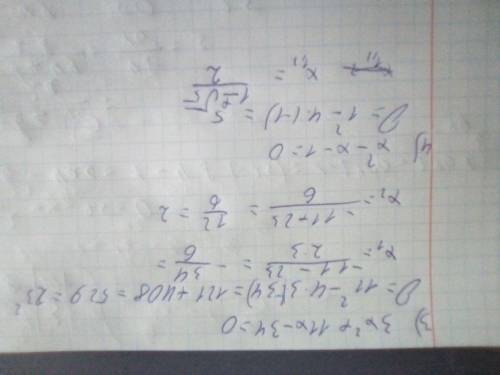 3) 3x² + 11x - 34 = 0
D = 11² - 4·3·(-34) = 121 + 408 = 529 = 23²
x₁ = (-11 - 23)/(2·3) = -34/6 =
x₂ = (-11 + 23)/6 = 12/6 = 2
4) x² - x - 1 = 0
D = 1² - 4·(-1) = 5
x₁,₂ = (1 ± √5)/2